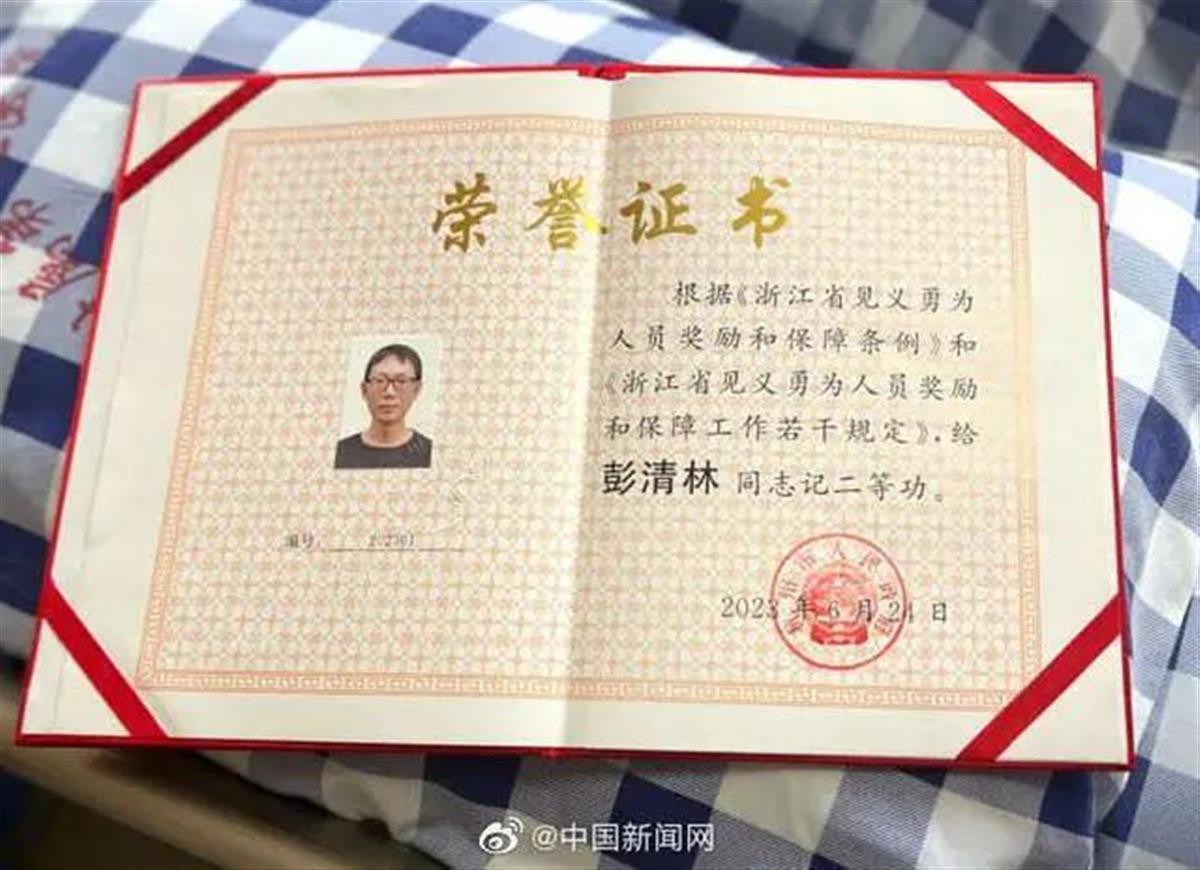 荣誉证书
根据《浙江省见义勇为
人员奖励和保障条例》和
《浙江省见义勇为人员奖励
和保障工作若干规定》,给
彭清林 同志记二等功。
编号:
市人民政府
2023 年 6 月 24 日
@中国新闻网